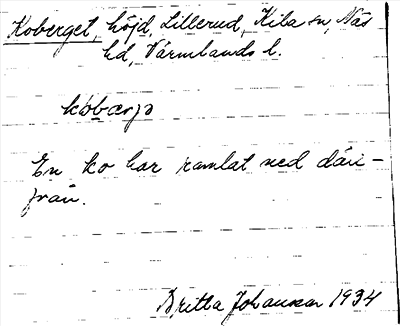 Koberget, höjd, Lillerud, Kila sn, Näs
hd, Värmlands l.
En ko har ramlat ned däri-
från.
Britta Johansson 1934